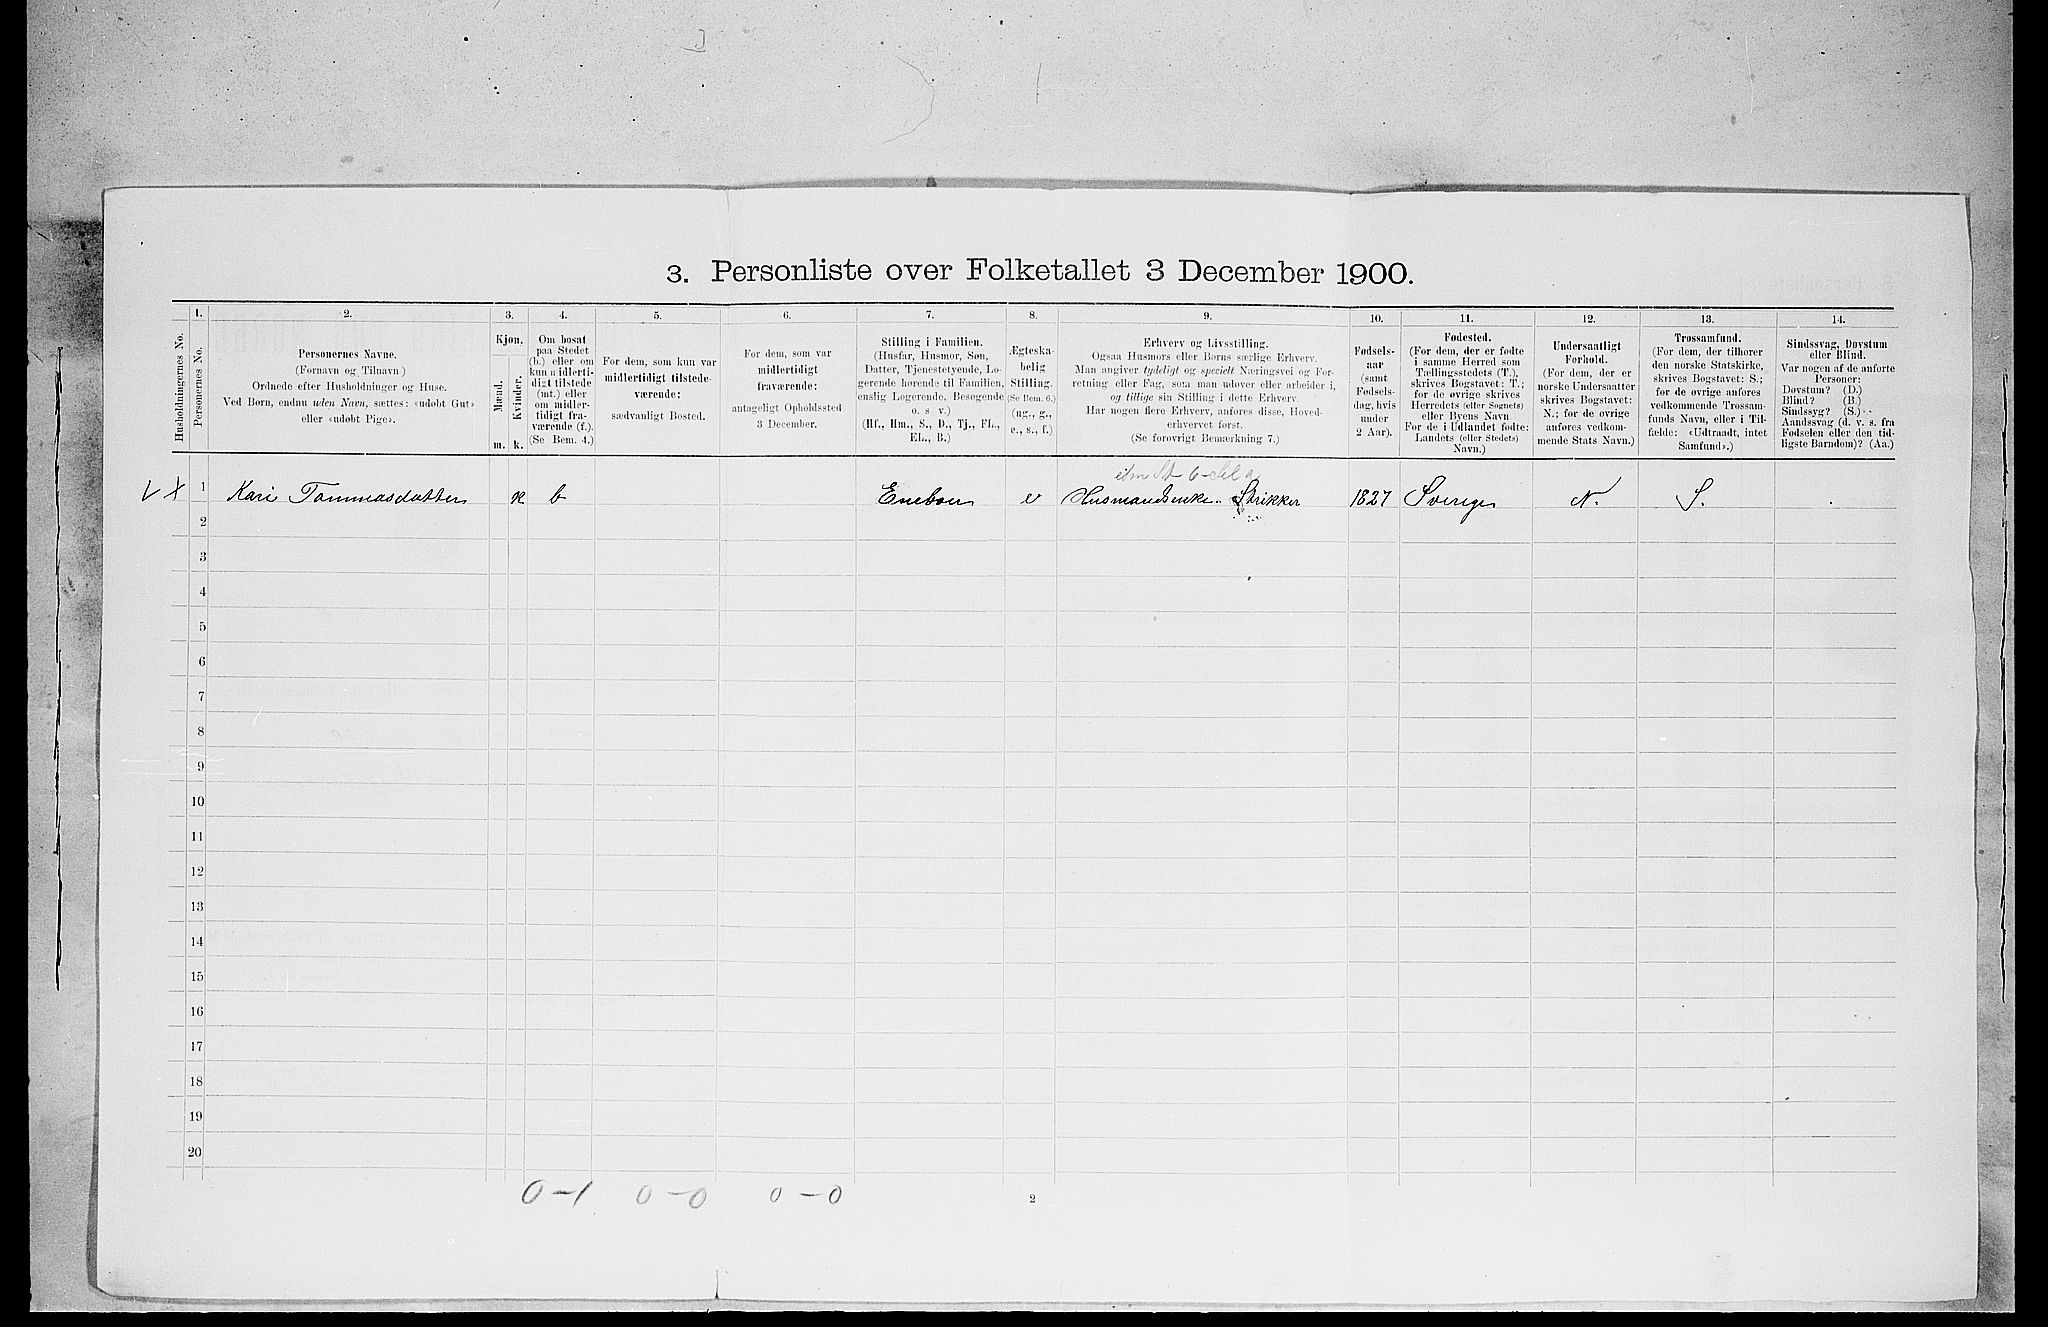 3. Personliste over Folketallet 3 December 1900.
1. 2. 3. 4. 5. 6. 7. 8. 9. 10. 11. 12. 13. 14.
Husholdningernes No.
Personernes No.
Personernes Navne.
(Fornavn og Tilnavn.)
Ordnede efter Husholdninger og Huse.
Ved Børn, endnu uden Navn, sættes: «udøbt Gut»
eller «udøbt Pige».
Kjøn.
Mænd.
Kvinder.
m. k.
Om bosat
paa Stedet
(b.) eller om
kun midlerti-
digt tilstede
(mt.) eller
om midler-
tidigt fra-
værende (f.).
(Se Bem. 4.)
For dem, som kun var
midlertidigt tilstede-
værende:
sædvanligt Bosted.
For dem, som var
midlertidigt
fraværende:
antageligt Opholdssted
3 December.
Stilling i Familien.
(Husfar, Husmor, Søn,
Datter, Tjenestetyende, Lo-
gerende hørende til Familien,
enslig Logerende, Besøgende
o. s v.)
(Hf., Hm., S., D., Tj., FL.,
EL., B.)
Ægteska-
belig
Stilling.
(Se Bem. 6.)
(ug., g.,
e., s., f.)
Erhverv og Livsstilling.
Ogsaa Husmors eller Børns særlige Erhverv.
Man angiver tydeligt og specielt Næringsvei og For-
retning eller Fag, som man udøver eller arbeider i,
og tillige sin Stilling i dette Erhverv.
Har nogen flere Erhverv, anføres disse, Hoved-
erhvervet først.
(Se forøvrigt Bemærkning 7.)
Fødsels-
aar
(samt
Fødsels-
dag, hvis
under
2 Aar).
Fødested.
(For dem, der er fødte
i samme Herred som
Tællingsstedets (T.),
skrives Bogstavet: T.;
for de øvrige skrives
Herredets (eller Sognets)
eller Byens Navn
For de i Udlandet fødte:
Landets (eller Stedets)
Navn.)
Undersaatligt
Forhold.
(For dem, der er
norske Undersaatter
skrives Bogstavet:
N.; for de øvrige
anføres vedkom-
mende Stats Navn.)
Trossamfund.
(For dem, der tilhører
den norske Statskirke,
skrives Bogstavet: S.;
for de øvrige anføres
vedkommende Trossam-
funds Navn, eller i Til-
fælde: «Udtraadt, intet
Samfund».)
Sindssvag, Døvstum
eller Blind.
Var nogen af de anførte
Personer:
Døvstum? (D.)
Blind? (B.)
Sindssyg? (S.)
Aandssvag (d. v. s. fra
Fødselen eller den tid-
ligste Barndom)? (Aa.)
1 Kari Tommasdatter k b Eneboer e Husmandsenke. Strikker 1827 Sverige N. S.
2
3
4
5
6
7
8
9
10
11
12
13
14
15
16
17
18
19
20
0-1 0-0 0-0
2